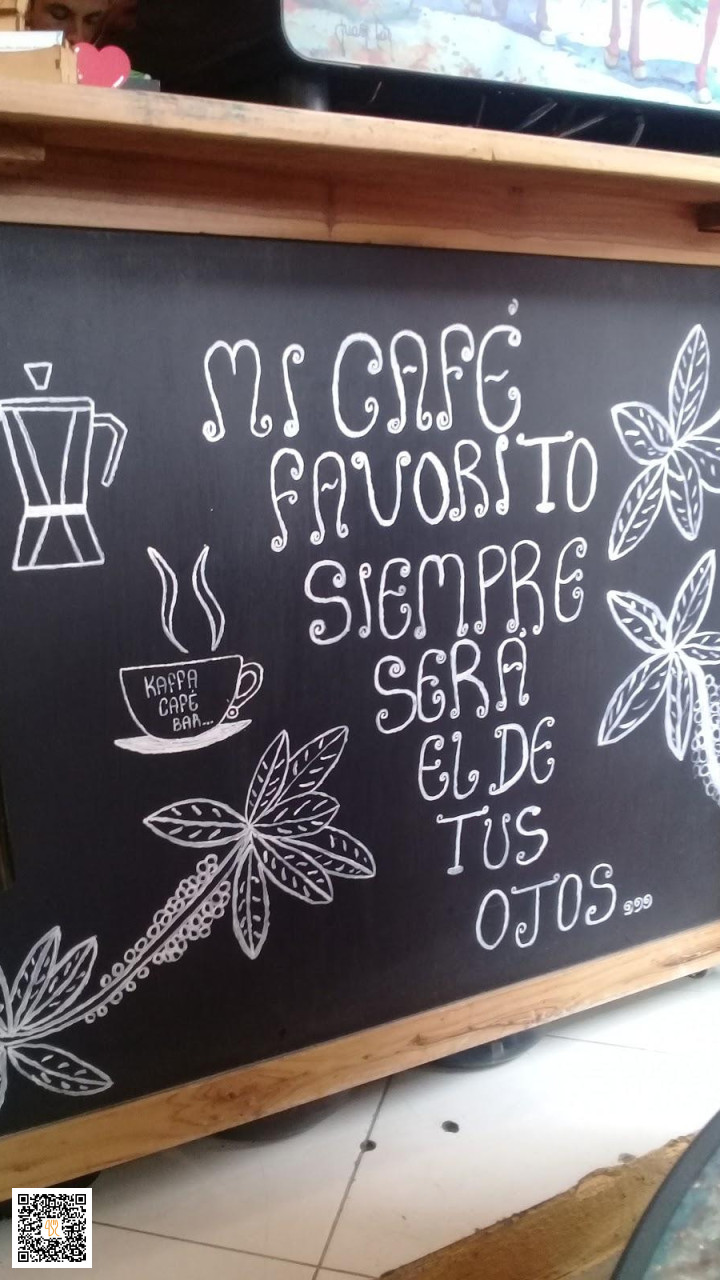 MI CAFÉ
FAVORITO
SIEMPRE
SERÁ
EL DE
TUS
OJOS...
KAFFA
CAFÉ
BAR...